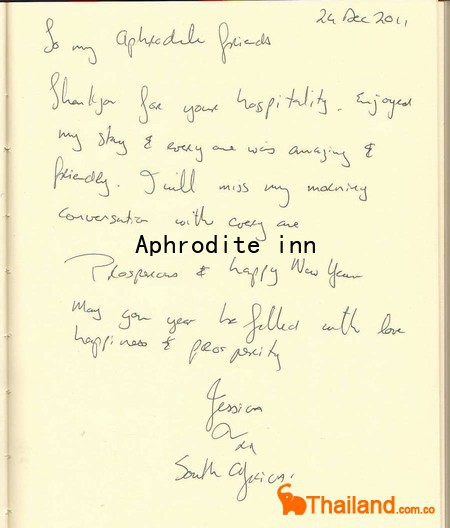 24 Dec 2011
To my Aphrodite friends
Thankyou for your hospitality. Enjoyed
my stay & every one was amazing &
friendly. I will miss my morning
conversation with every one
Aphrodite inn
Prosperous & happy New Year
May your year be filled with love
happiness & prosperity
Jessica
South Africa.
Thailand.com.co